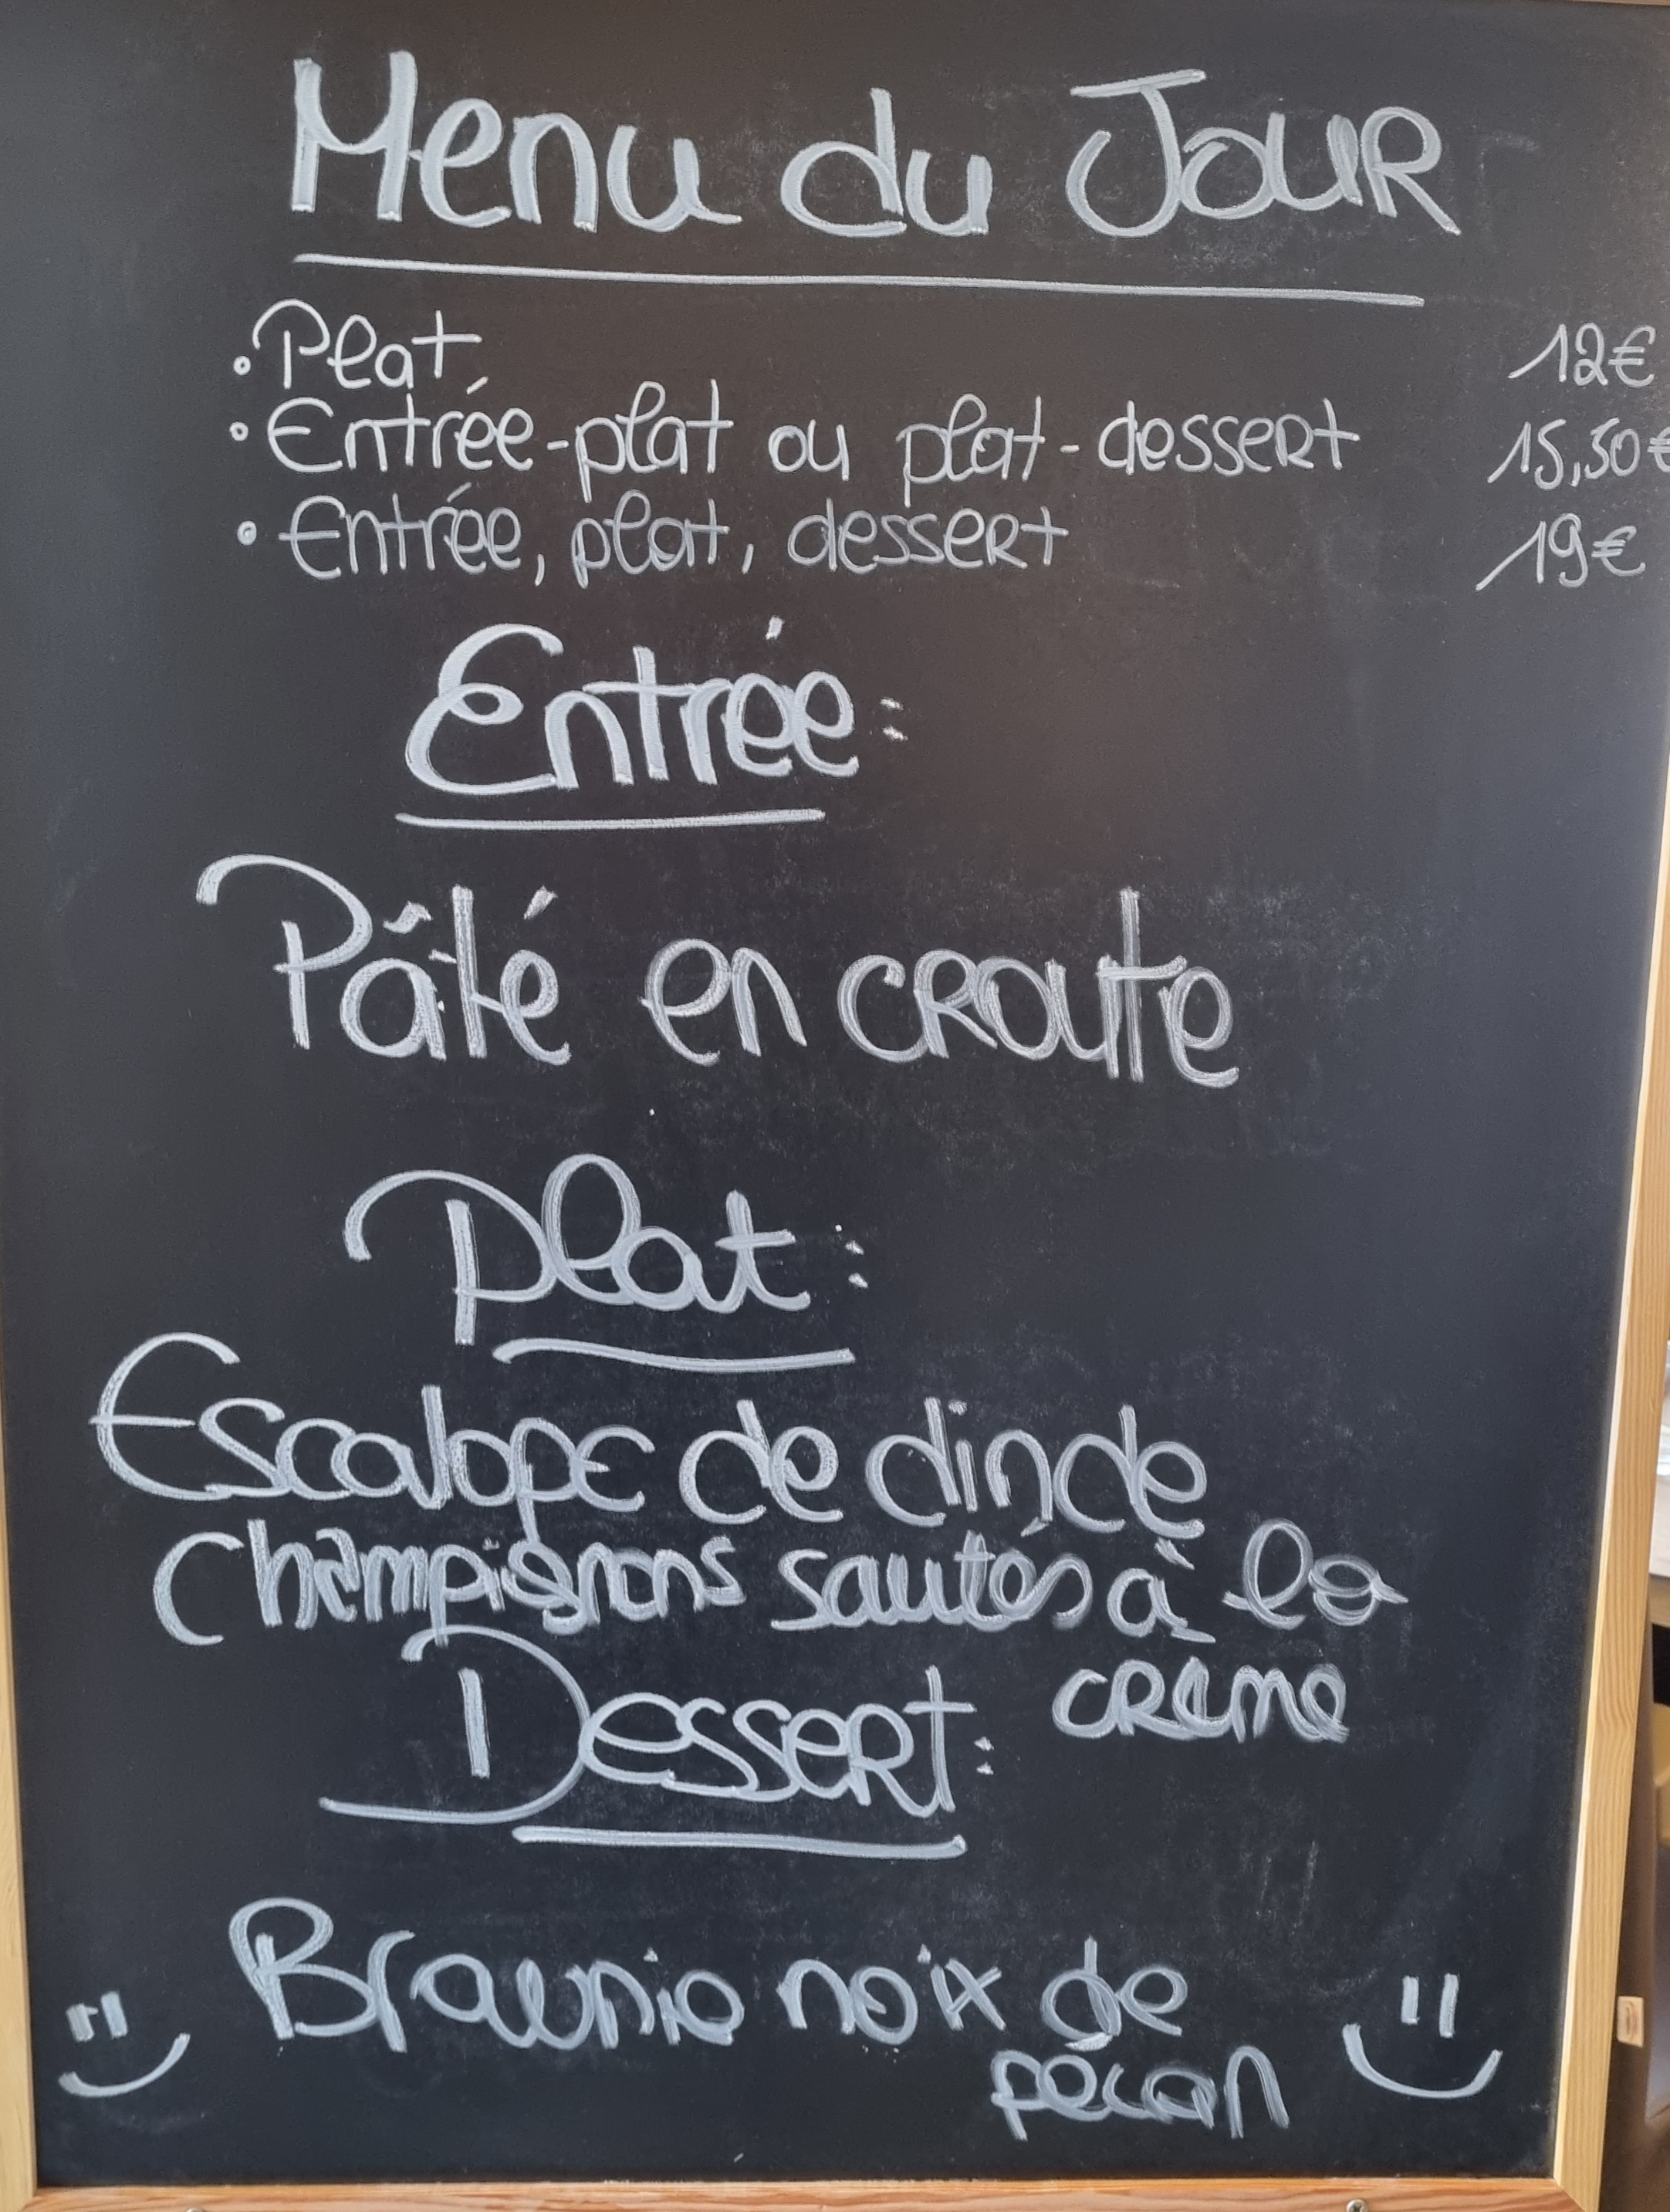 Menu du Jour
• Plat 12€
• Entrée-plat ou plat-dessert 15,50€
• Entrée, plat, dessert 19€
Entrée:
Pâté en croute
Plat:
Escalope de dinde
Champignons sautés à la
crème
Dessert:
Brownie noix de
pecan